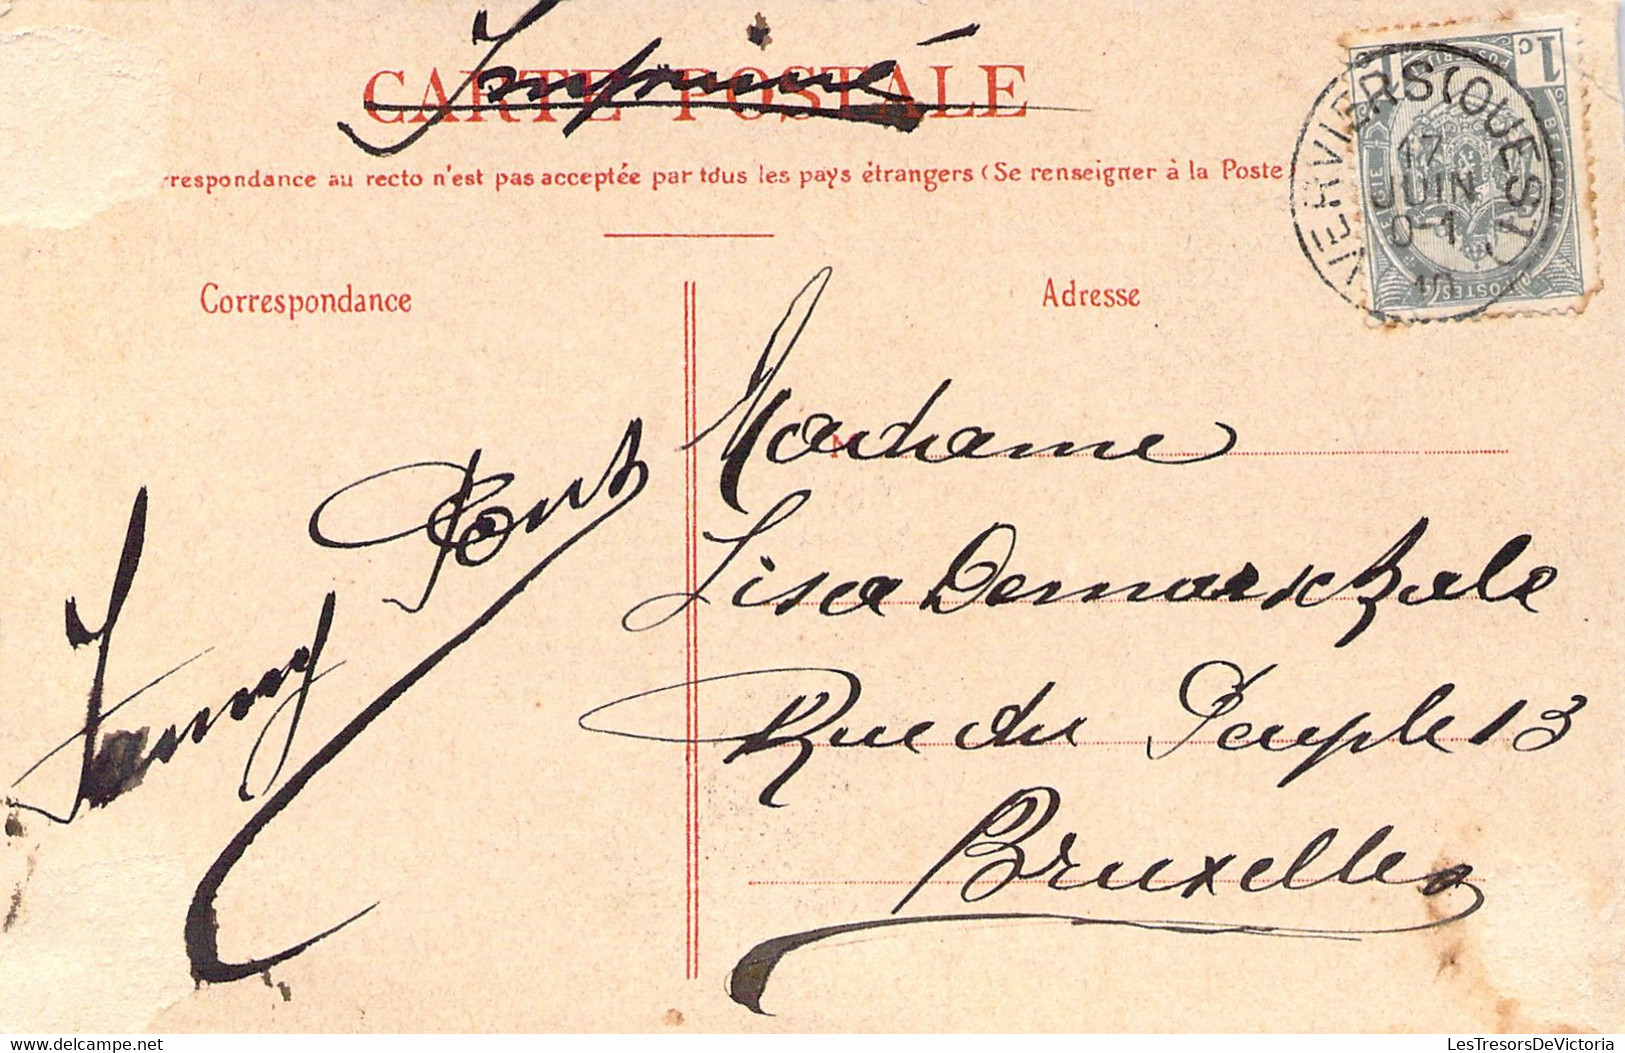 Imprimé
CARTE POSTALE
rrespondance au recto n'est pas acceptée par tous les pays étrangers (Se renseigner à la Poste
Correspondance
Adresse
VERVIERS (OUEST)
17
JUIN
1c
BELGIQUE
POSTES
Madame
Lisa
Rue du Peuple 13
Bruxelles
Fanny
LesTresorsDeVictoria